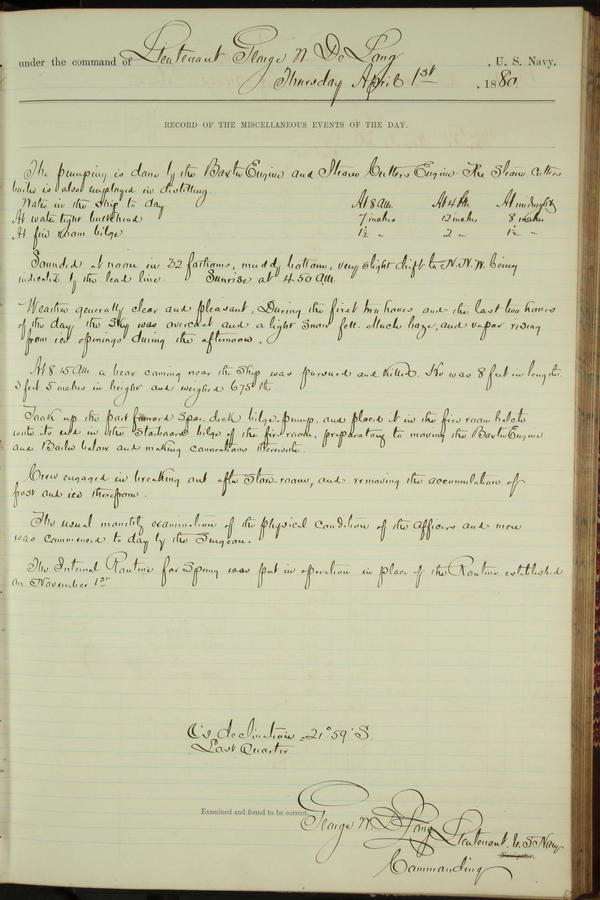 under the command of Lieutenant George W. De Long, U. S. Navy,
Thursday April 1st, 1880.
RECORD OF THE MISCELLANEOUS EVENTS OF THE DAY.
The pumping is done by the Baxter Engine and Steam Cutters Engine. The Steam Cutters
boiler is also employed in distilling.
Water in the Ship to day At 8 AM. At 4 PM. At midnight
At water tight bulkhead 7 inches 12 inches 8 inches
At fire room bilge 1½ " 2 " 1½ "
Sounded at noon in 32 fathoms, muddy bottom, very slight drift to N.N.W. being
indicated by the lead line. Sunrise at 4.50 AM.
Weather generally clear and pleasant, During the first two hours and the last two hours
of the day the Ship was overcast and a light snow fell. Much haze, and vapor rising
from ice openings during the afternoon.
At 8.15 AM a bear coming near the Ship was pursued and killed. He was 8 feet in length
3 feet 5 inches in height and weighed 675 lbs
Took up the port forward Spar deck bilge pump, and placed it in the fire room hatch
with its end in the Starboard bilge of the fire room, preparatory to moving the Baxter Engine
and Boiler below and making connections therewith.
Crew engaged in breaking out after Store rooms, and removing the accumulation of
frost and ice therefrom.
The usual monthly examination of the physical condition of the officers and men
was commenced to day by the Surgeon.
The Internal Routine for Spring was put in operation in place of the Routine established
on November 1st
☾'s declination = 21° 59' S.
Last Quarter
Examined and found to be correct.
George W. De Long Lieutenant U.S. Navy
Navigator.
Commanding